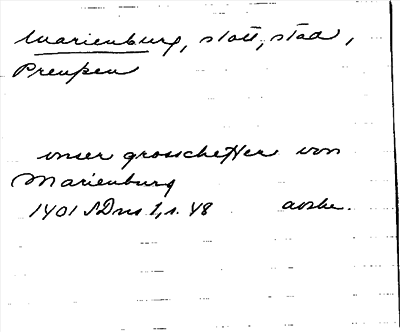 Marienburg, slott, stad,
Preuẞen
unser grosscheffer von
Marienburg
1401 SDns 1, s. 48 avskr.